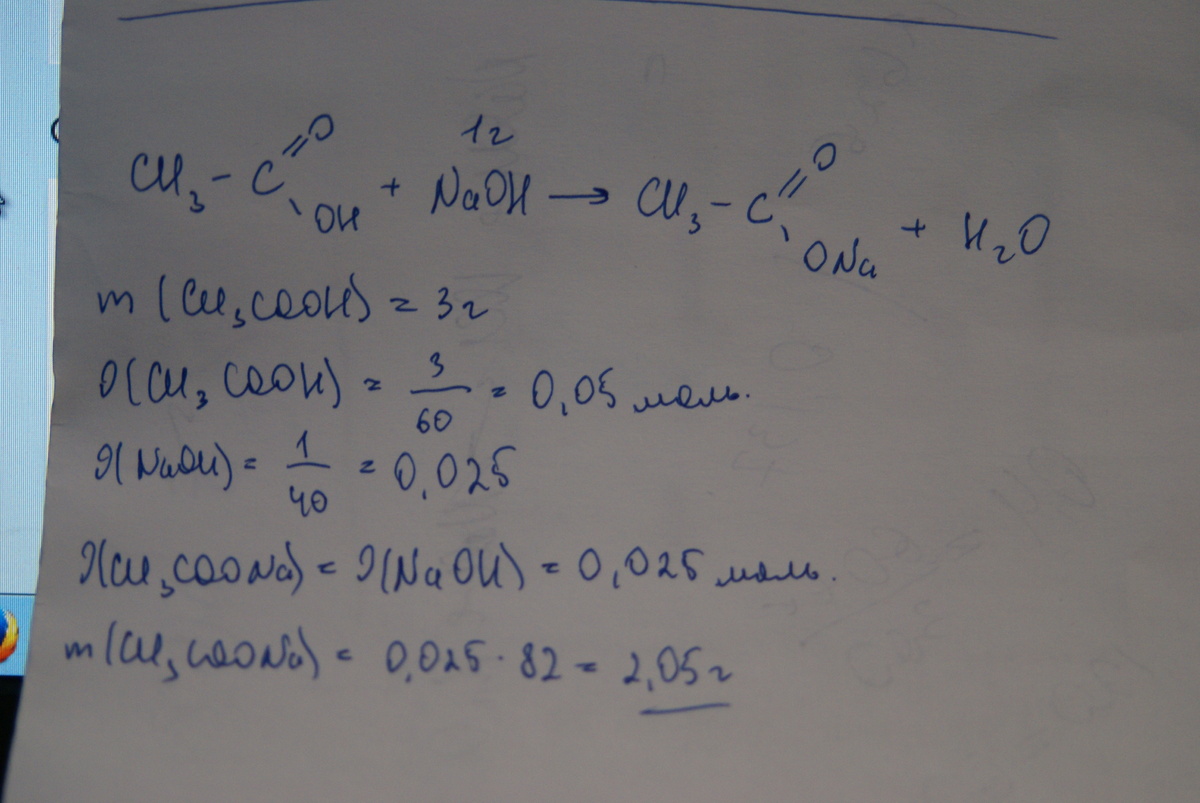 1г
CH₃ – C =O – OH + NaOH → CH₃ – C =O – ONa + H₂O
m (CH₃COOH) = 3г
ϑ(CH₃COOH) = 3/60 = 0,05 моль.
ϑ(NaOH) = 1/40 = 0,025
ϑ(CH₃COONa) = ϑ(NaOH) = 0,025 моль.
m (CH₃COONa) = 0,025 · 82 = 2,05г